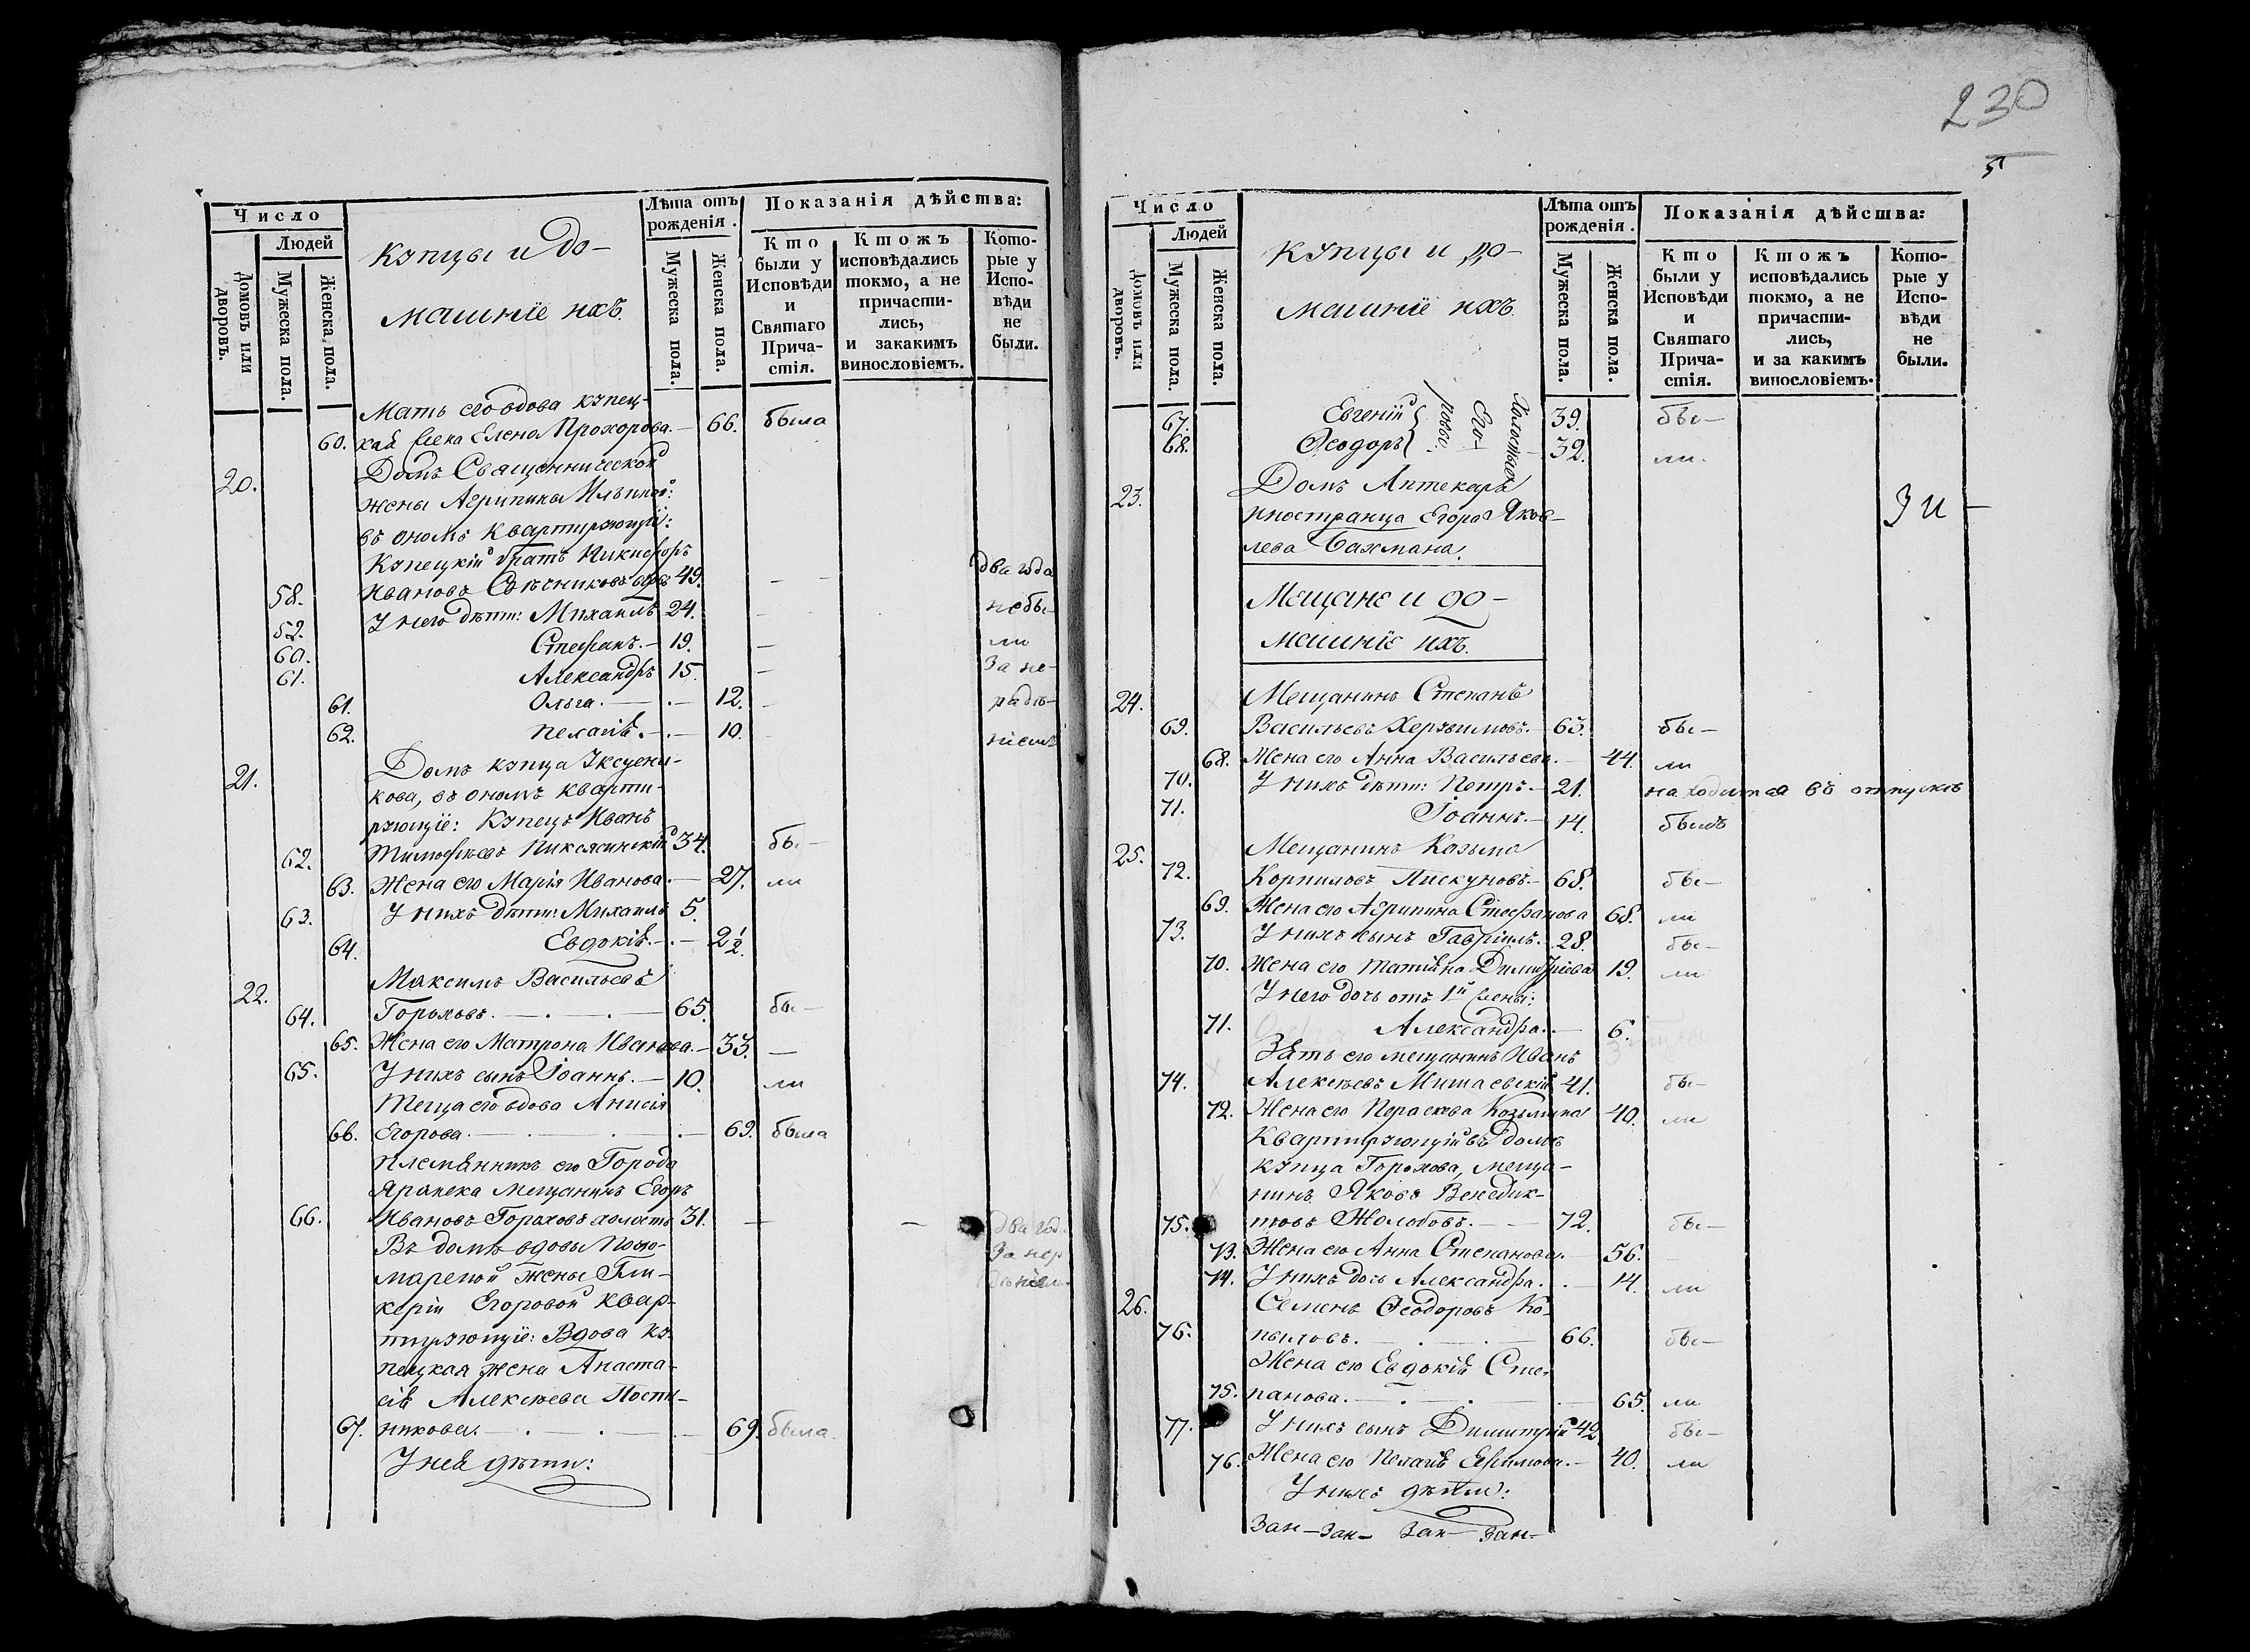 230
5
Число
Людей
Домовъ или дворовъ.
Мужеска пола.
Женска пола.
Купцы и до-
машніе ихъ.
Лѣта отъ рожденія.
Мужеска пола.
Женска пола.
Показанія дѣйства:
Кто были у Исповѣди и Святаго Причастія.
Ктожъ исповѣдались токмо, а не причастились, и закакимъ винословіемъ.
Которые у Исповѣди не были.
Мать его вдова купец-
60. кая жена Елена Прохорова. — 66. была
20. Домъ Священнической
жены Агрипины Ильиной:
въ ономъ квартирующій:
Купецкій братъ Никифоръ
58. Ивановъ Свѣчниковъ вдовъ 49. - - два года
59. У него дѣти: Михаилъ 24. - небы-
60. Стефанъ. — 19. — ли
61. Александръ 15. - за не-
61. Ольга. — 12. - радѣ-
62. Пелагія. — 10. ніемъ
21. Домъ купца
кова, въ ономъ кварти-
рующіе: Купецъ Иванъ
62. Тимофѣевъ 34. бы-
63. Жена его Марія Иванова. — 27. ли
63. У нихъ дѣти: Михаилъ 5.
64. Евдокія. — 2 1/2.
22. Максимъ Васильевъ
64. Гороховъ. — 65. бы-
65. Жена его Матрона Иванова. — 33. —
65. У нихъ сынъ Іоаннъ. — 10. ли
Теща его вдова Анисія
66. Егорова. — 69. была
Племянникъ его Города
Яранска мещанинъ Егоръ
66. Ивановъ Гороховъ холостъ 31. — — два год
Въ домѣ вдовы Поно- за нер
маревой жены Гли- дѣніем
керіи Егоровой квар-
тирующіе: Вдова ку-
пецкая жена Анаста-
сія Алексѣева Постни-
67. никова. — 69. была.
У нея дѣти:
Число
Людей
Домовъ или дворовъ.
Мужеска пола.
Женска пола.
Купцы и до-
машніе ихъ.
Лѣта отъ рожденія.
Мужеска пола.
Женска пола.
Показанія дѣйства:
Кто были у Исповѣди и Святаго Причастія.
Ктожъ исповѣдались токмо, а не причастились, и за какимъ винословіемъ.
Которые у Исповѣди не были.
67. Евгеній Его- Холостые 39. бы-
68. Ѳеодоръ ровы: 32. ли.
23. Домъ Аптекаря
иностранца Егора Яков-
лева Бахмана.
Мещане и до-
машніе ихъ.
24. Мещанинъ Степанъ
69. Васильевъ — 63. бы-
68. Жена его Анна Васильева. — 44. ли
70. У нихъ дѣти: Петръ. — 21. находится въ отпускѣ
71. Іоаннъ. — 14. былъ
25. Мещанинъ Козьма
72. Корниловъ Пискуновъ. — 68. бы-
69. Жена его Агрипина Стефанова 68. ли
73. У нихъ сынъ Гавріилъ. — 28. бы-
70. Жена его Татіана Димитріева 19. ли
У него дочь отъ 1й жены:
71. Александра. — 6.
Зять его мещанинъ Иванъ
74. Алексѣевъ 41. бы-
72. Жена его Параскева Козьмина 40. ли
Квартирующій въ домѣ
купца Горохова, меща-
нинъ Яковъ Венедик-
75. товъ Жолобовъ. — 72. бы-
73. Жена его Анна Степанова. 56. -
74. У нихъ дочь Александра. — 14. ли
26. Семенъ Ѳеодоровъ Ко-
76. пыловъ. — 66. бы-
Жена его Евдокія Сте-
75. панова. — 65. ли
77. У нихъ сынъ Димитрій 42. бы-
76. Жена его Пелагія Ефимова. — 40. ли
У нихъ дѣти: